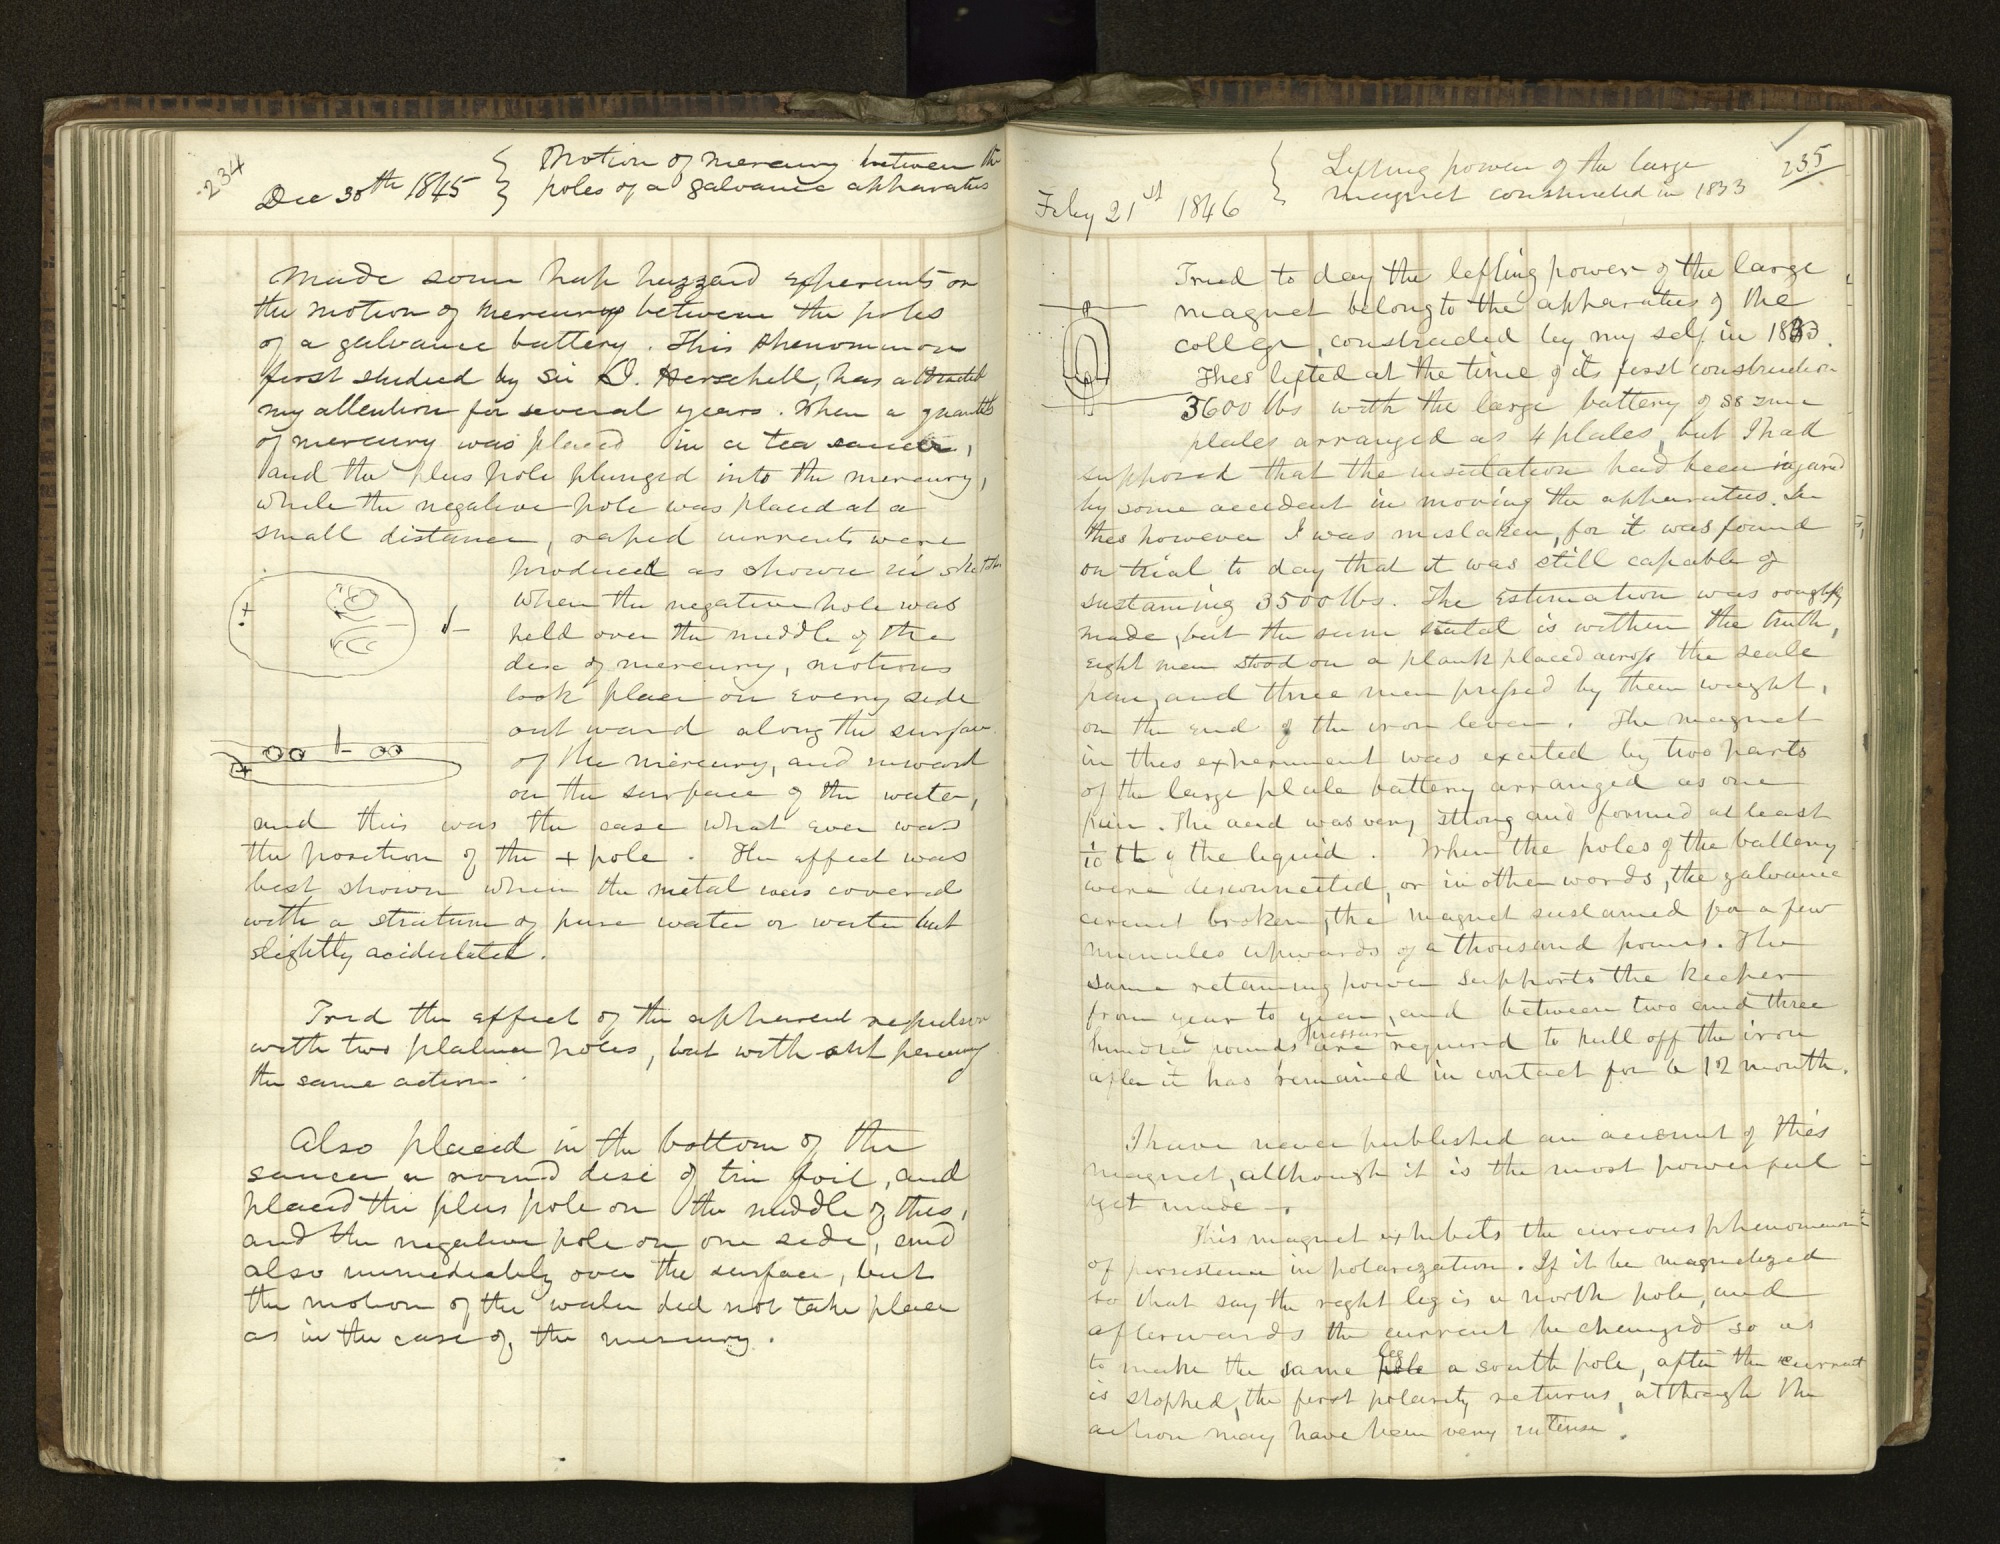 234
Dec 30th 1845 { Motion of mercury between the
poles of a galvanic apparatus
Made some hap hazzard experients on
the motion of mercury between the poles
of a galvanic battery. This phenominon
first studied by Sir D. Herschell, has attracted
my attention for several years. When a quantity
of mercury was placed in a tea saucer,
and the plus pole plunged into the mercury,
while the negative pole was placed at a
small distance, raped currents were
produced as shown in sketch
when the negative pole was
held over the middle of the
disc of mercury, motions
took place on every side
out ward along the surface
of the mercury, and inward
on the surface of the water,
and this was the case what ever was
the position of the + pole. The effect was
best shown when the metal was covered
with a stratum of pure water or water but
slightly acidulated.
Tried the effect of the apparent repulsion
with two platina poles, but with out perceiving
the same action.
Also placed in the bottom of the
saucer a round disc of tin foil, and
placed the plus pole on the middle of this,
and the negative pole on one side, and
also immediately over the surface, but
the motion of the water did not take place
as in the case of the mercury.
+
-
-
+
235
Feby 21st 1846 { Lifting power of the large
magnet constructed in 1833
Tried to day the lefting power of the large
magnet belong to the apparatus of the
college, constructed by my self in 1833.
This lifted at the time of its first construction
3600 lbs with the large battery of 88 zinc
plates arranged as 4 plates, but I had
supposed that the insulation had been injured
by some accident in moving the apparatus. In
this however I was mistaken, for it was found
on trial to day that it was still capable of
sustaining 3500 lbs. The estimation was roughly
made, but the sum stated is within the truth,
eight men stood on a plank placed across the scale
pan, and three men pressed by their weight,
on the end of the iron lever. The magnet
in this experiment was excited by two parts
of the large plate battery arranged as one
pair. The acid was very strong and formed at least
1/10 th of the liquid. When the poles of the battery
were disconnected, or in other words, the galvanic
circuit broken, the magnet sustained for a few
minutes upwards of a thousand pouns. The
same retaining power supports the keeper
from year to year, and between two and three
hundred pounds pressure are required to pull off the iron
after it has remained in contact for a 12 month.
I have never published an account of this
magnet, although it is the most powerful
yet made.
This magnet exhibets the cureous phenomenon
of persistence in polarization. If it be magnetized
so that say the right leg is a north pole, and
afterwards the current be changed so as
to make the same leg a south pole, after the current
is stopped, the first polarity returns, although the
action may have been very intense.